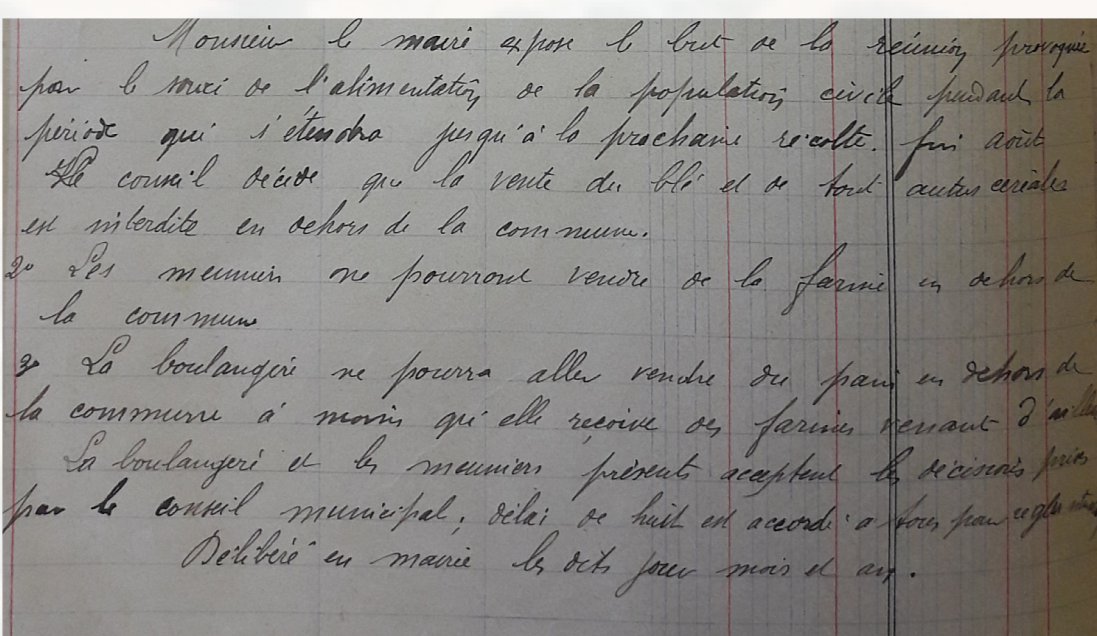 Monsieur le maire expose le but de la réunion provoquée
par le souci de l'alimentation de la population civile pendant la
période qui s'étendra jusqu'à la prochaine récolte. fin août
Le conseil décide que la vente du blé et de tout autres céréales
est interdite en dehors de la commune.
2° Les meuniers ne pourront vendre de la farine en dehors de
la commune
3° La boulangère ne pourra aller vendre du pain en dehors de
la commune à moins qu'elle reçoive des farines venant d'ailleurs
La boulangère et les meuniers présents acceptent les décisions prises
par le conseil municipal, délai de huit est accordé a tous pour
Délibéré en mairie les dits jour mois et an.